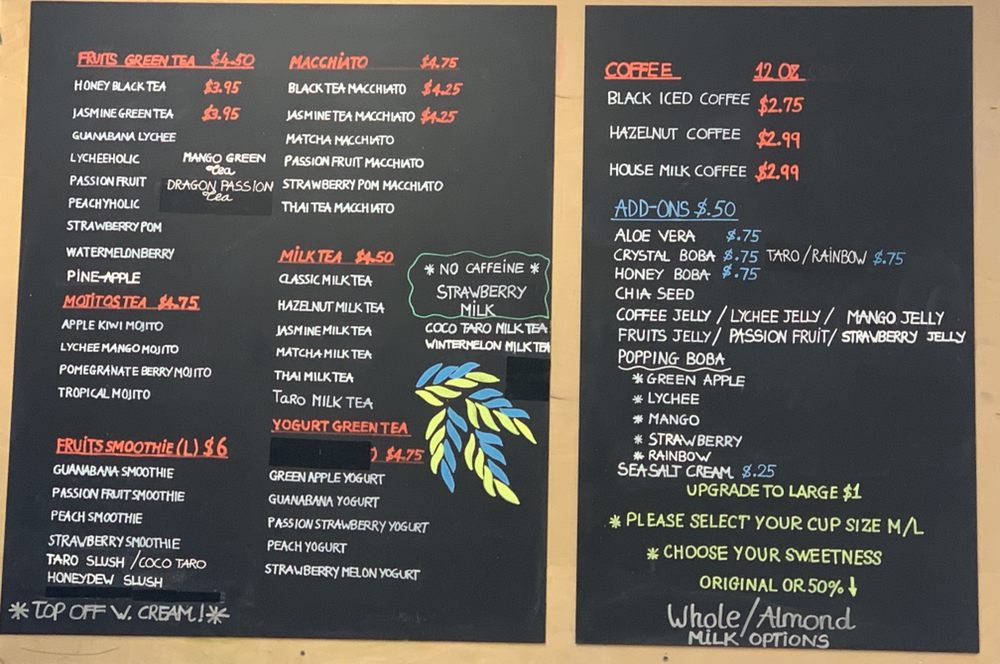 FRUITS GREEN TEA $4.50
HONEY BLACK TEA $3.95
JASMINE GREEN TEA $3.95
GUANABANA LYCHEE
LYCHEEHOLIC
PASSION FRUIT
PEACHYHOLIC
STRAWBERRY POM
WATERMELONBERRY
PINE-APPLE
MANGO GREEN
tea
DRAGON PASSION
tea
MOJITOS TEA $4.75
APPLE KIWI MOJITO
LYCHEE MANGO MOJITO
POMEGRANATE BERRY MOJITO
TROPICAL MOJITO
FRUITS SMOOTHIE (L) $6
GUANABANA SMOOTHIE
PASSION FRUIT SMOOTHIE
PEACH SMOOTHIE
STRAWBERRY SMOOTHIE
TARO SLUSH / COCO TARO
HONEYDEW SLUSH
* TOP OFF W. CREAM! *
MACCHIATO $4.75
BLACK TEA MACCHIATO $4.25
JASMINE TEA MACCHIATO $4.25
MATCHA MACCHIATO
PASSION FRUIT MACCHIATO
STRAWBERRY POM MACCHIATO
THAI TEA MACCHIATO
MILK TEA $4.50
CLASSIC MILK TEA
HAZELNUT MILK TEA
JASMINE MILK TEA
MATCHA MILK TEA
THAI MILK TEA
TARO MILK TEA
* NO CAFFEINE *
STRAWBERRY
MILK
COCO TARO MILK TEA
WINTERMELON MILK TEA
YOGURT GREEN TEA
) $4.75
GREEN APPLE YOGURT
GUANABANA YOGURT
PASSION STRAWBERRY YOGURT
PEACH YOGURT
STRAWBERRY MELON YOGURT
COFFEE 12 OZ
BLACK ICED COFFEE $2.75
HAZELNUT COFFEE $2.99
HOUSE MILK COFFEE $2.99
ADD-ONS $.50
ALOE VERA $.75
CRYSTAL BOBA $.75 TARO/RAINBOW $.75
HONEY BOBA $.75
CHIA SEED
COFFEE JELLY / LYCHEE JELLY / MANGO JELLY
FRUITS JELLY / PASSION FRUIT / STRAWBERRY JELLY
POPPING BOBA
* GREEN APPLE
* LYCHEE
* MANGO
* STRAWBERRY
* RAINBOW
SEA SALT CREAM $.25
UPGRADE TO LARGE $1
* PLEASE SELECT YOUR CUP SIZE M/L
* CHOOSE YOUR SWEETNESS
ORIGINAL OR 50% ↓
Whole/Almond
MILK OPTIONS